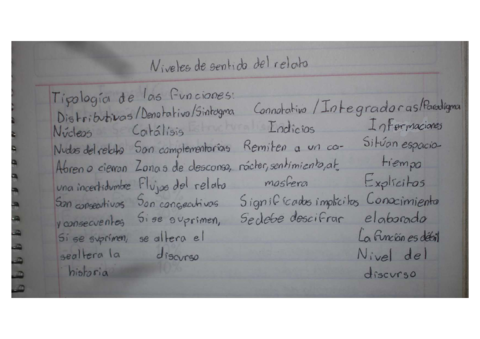 Niveles de sentido del relato
Tipología de las funciones:
Distributivas/Denotativo/Sintagma Connotativo/Integradoras/Paradigma
Núcleos Catálisis Indicios Informaciones
Nudos del relato Son complementarios Remiten a un ca- Sitúan espacio-
Abren o cierran Zonas de descanso, rácter, sentimiento, at tiempo
una incertidumbre Flujos del relato mosfera Explícitos
Son consecutivos Son consecutivos Significados implícitos Conocimiento
y consecuentes Si se suprimen, Se debe descifrar elaborado
Si se suprimen, se altera el La función es débil
se altera la discurso Nivel del
historia discurso